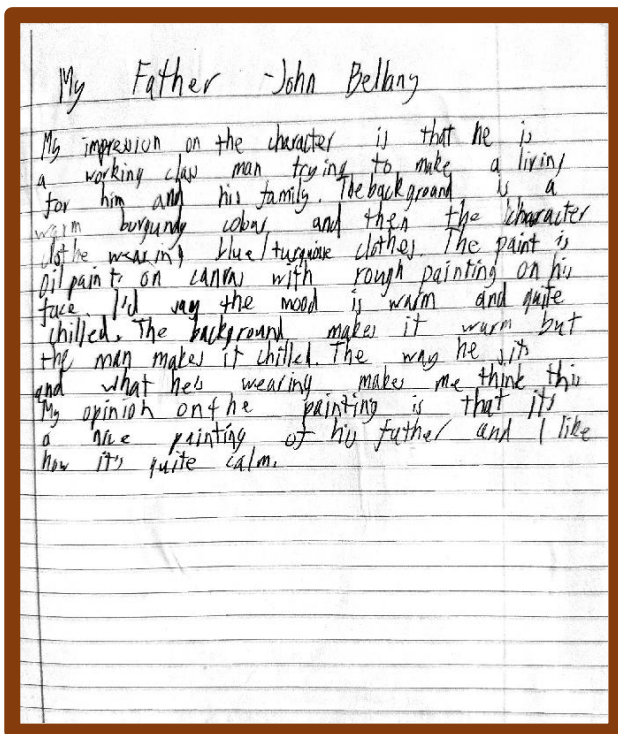 My Father -John Bellany
My impression on the character is that he is
a working class man trying to make a living
for him and his family. The background is a
warm burgundy colour and then the character
wearing blue/turquoise clothes. The paint is
oil paint on canvas with rough painting on his
face. I'd say the mood is warm and quite
chilled. The background makes it warm but
the man makes it chilled. The way he sits
and what he's wearing makes me think this
My opinion on the painting is that its
a nice painting of his father and I like
how it's quite calm.